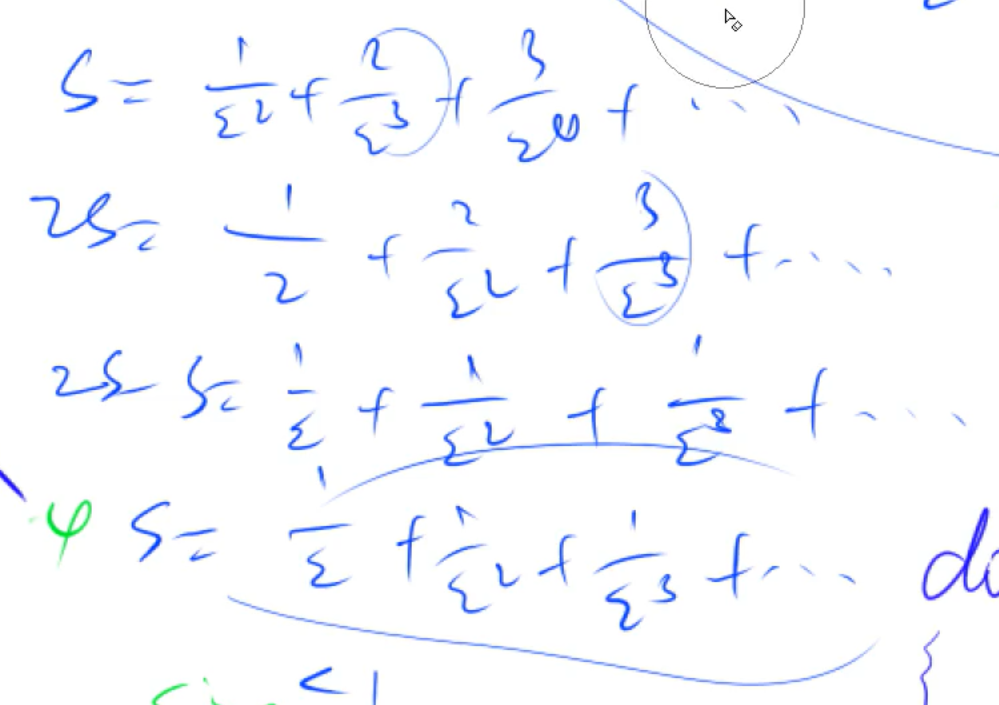 S = 1/2² + 2/2³ + 3/2⁴ + ...
2S = 1/2 + 2/2² + 3/2³ + ....
2S - S = 1/2 + 1/2² + 1/2³ + ....
φ S = 1/2 + 1/2² + 1/2³ + ....
< 1
{